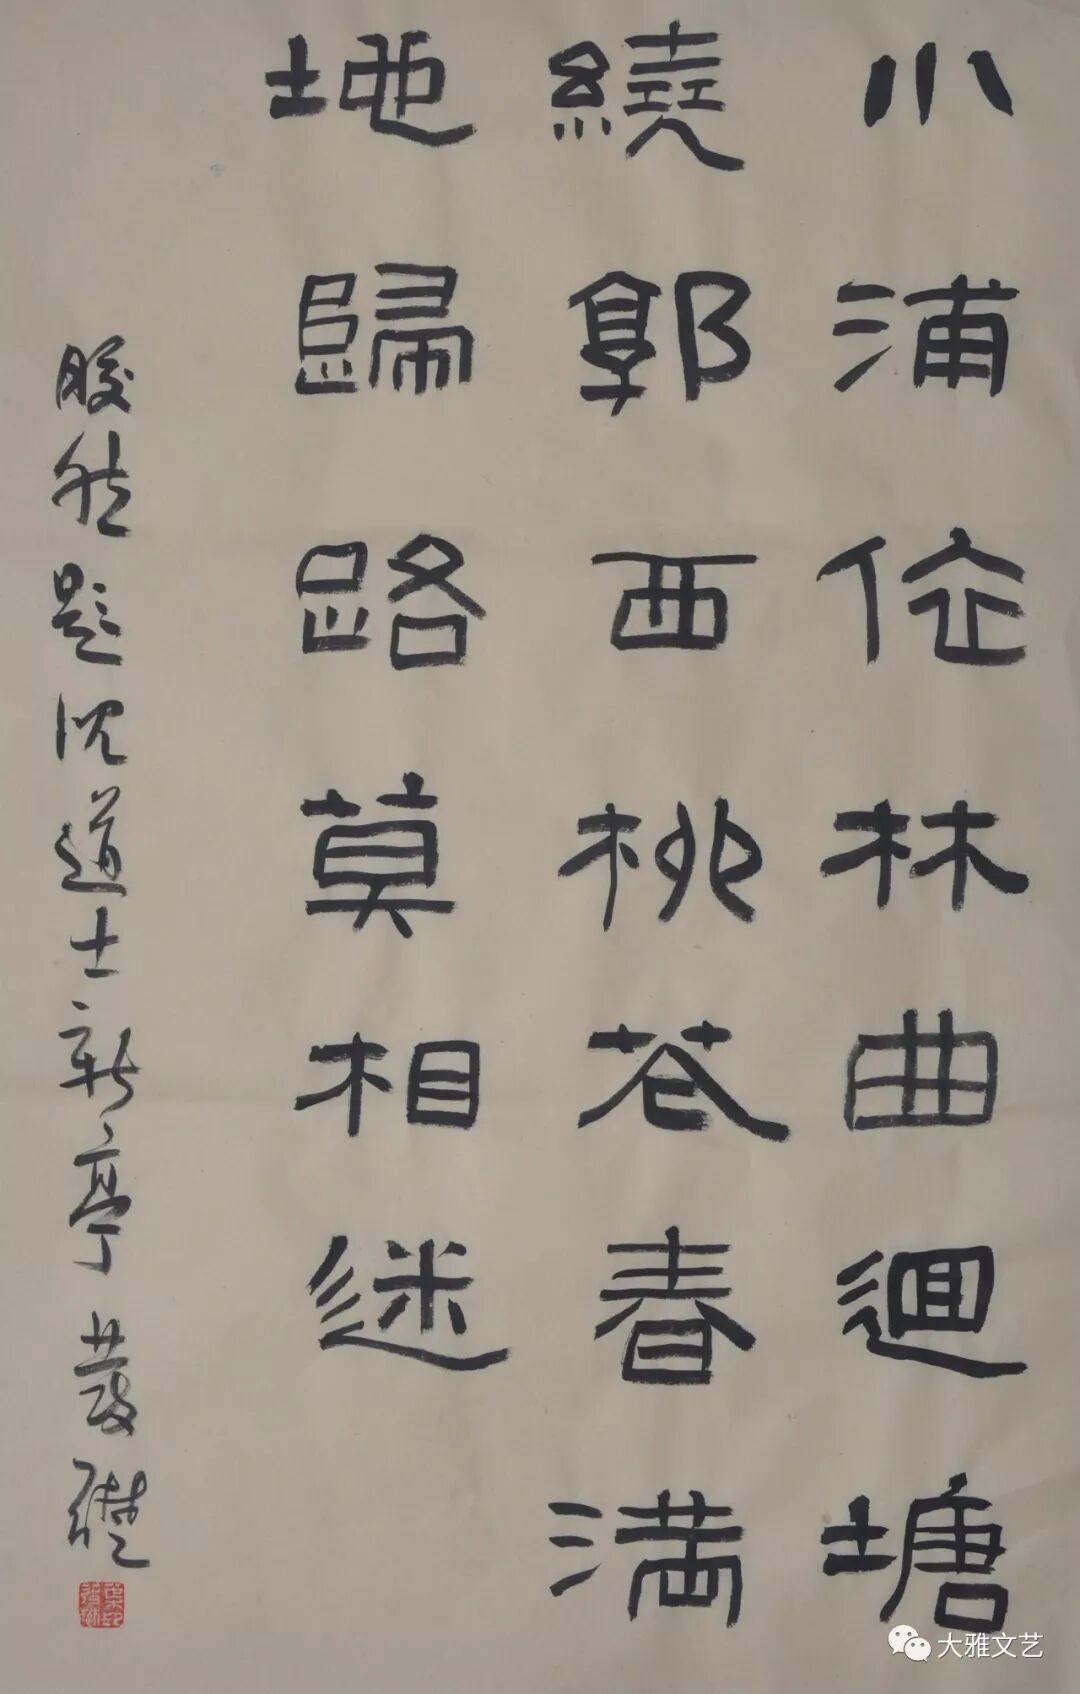 小浦依林曲迴塘
繞郭西桃花春滿
地歸路莫相迷
皎然題沈道士新亭 發礎
大雅文艺